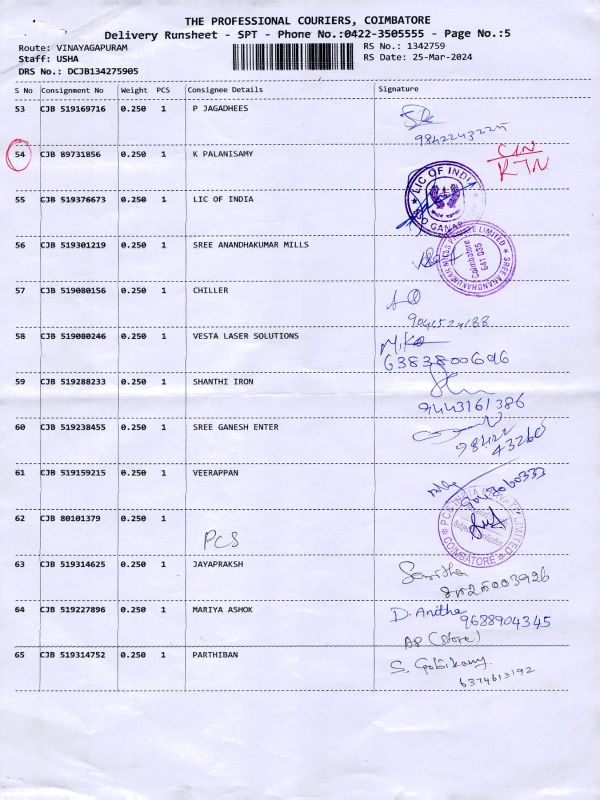 THE PROFESSIONAL COURIERS, COIMBATORE
Delivery Runsheet - SPT - Phone No.:0422-3505555 - Page No.:5
Route: VINAYAGAPURAM RS No.: 1342759
Staff: USHA RS Date: 25-Mar-2024
DRS No.: DCJB134275905
S No Consignment No Weight PCS Consignee Details Signature
53 CJB 519169716 0.250 1 P JAGADHEES
9842243225
54 CJB 89731856 0.250 1 K PALANISAMY
RTN
LIC OF INDIA
55 CJB 519376673 0.250 1 LIC OF INDIA
56 CJB 519301219 0.250 1 SREE ANANDHAKUMAR MILLS
SREE ANANDHAKUMAR MILLS PRIVATE LIMITED
Coimbatore
641 035
57 CJB 519080156 0.250 1 CHILLER
58 CJB 519080246 0.250 1 VESTA LASER SOLUTIONS
6383800696
59 CJB 519288233 0.250 1 SHANTHI IRON
9443161386
60 CJB 519238455 0.250 1 SREE GANESH ENTER
98422
43260
61 CJB 519159215 0.250 1 VEERAPPAN
62 CJB 80101379 0.250 1
PCS
COIMBATORE
63 CJB 519314625 0.250 1 JAYAPRAKSH
64 CJB 519227896 0.250 1 MARIYA ASHOK D. Anitha
9688904345
AP (Store)
65 CJB 519314752 0.250 1 PARTHIBAN
6374613192